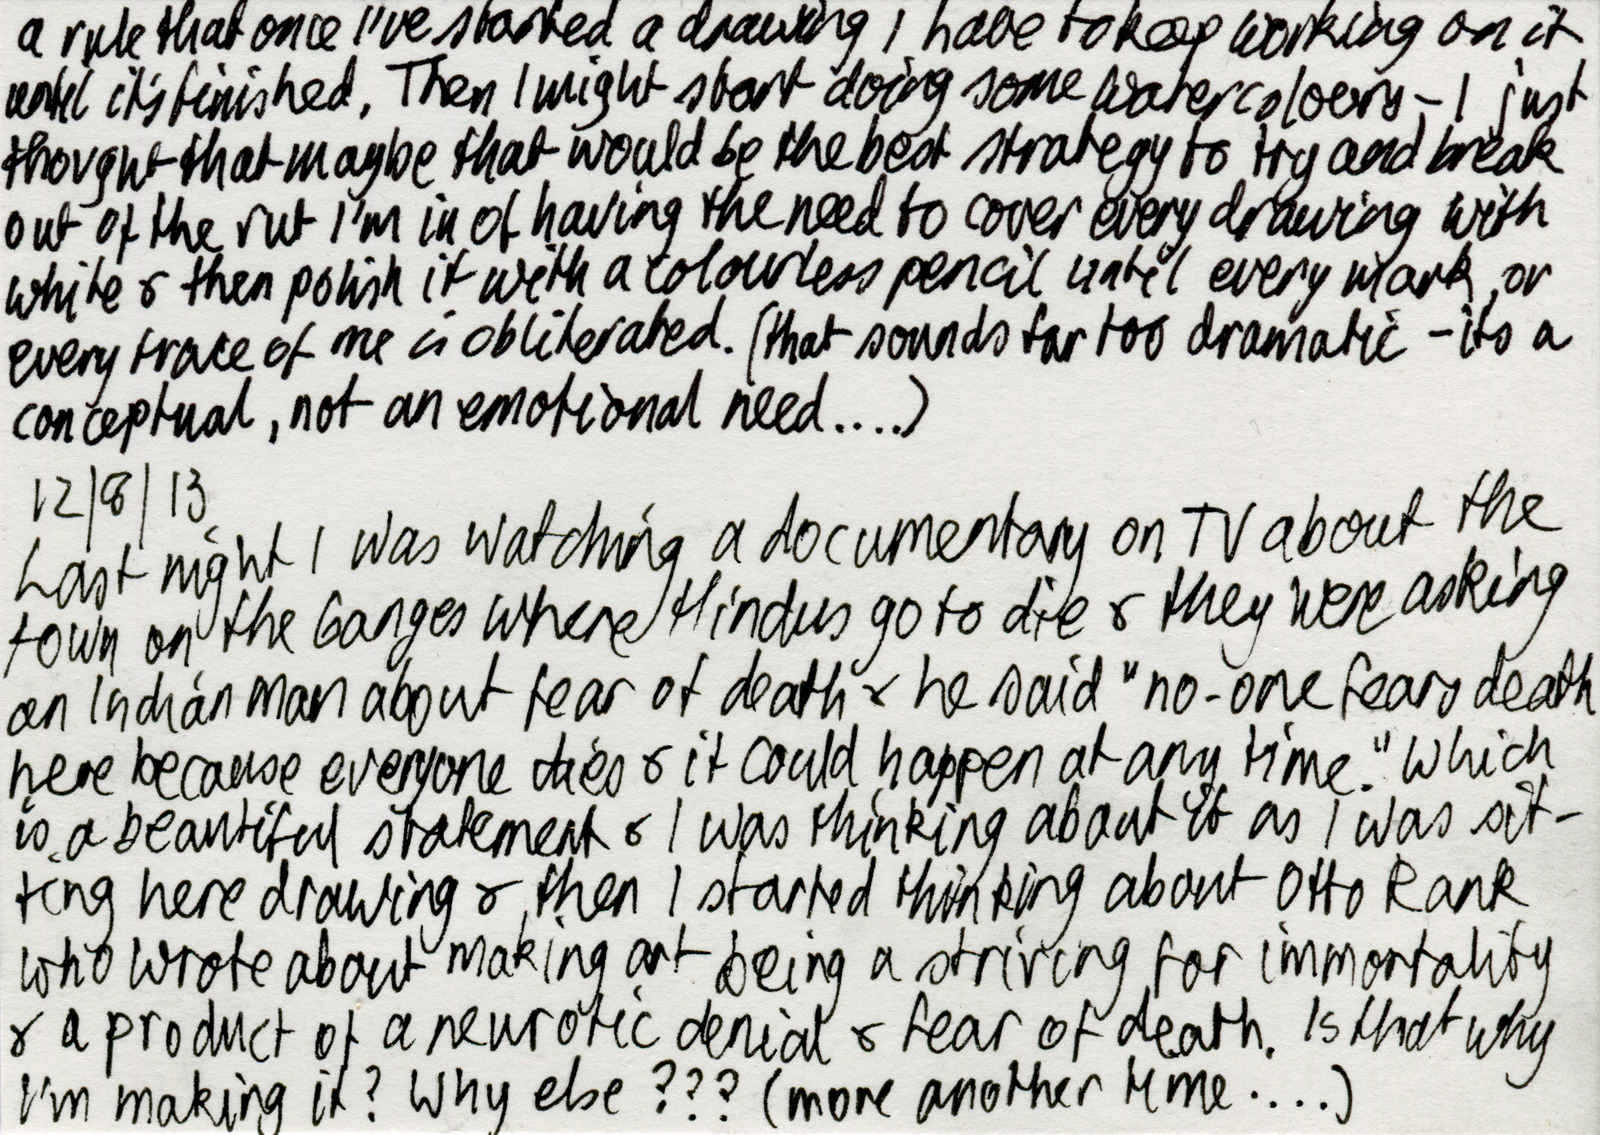 a rule that once I've started a drawing I have to keep working on it
until it's finished. Then I might start doing some watercolours - I just
thought that maybe that would be the best strategy to try and break
out of the rut I'm in of having the need to cover every drawing with
white & then polish it with a colourless pencil until every mark, or
every trace of me is obliterated. (that sounds far too dramatic - its a
conceptual, not an emotional need....)
12/8/13
Last night I was watching a documentary on TV about the
town on the Ganges where Hindus go to die & they were asking
an Indian man about fear of death & he said "no-one fears death
here because everyone dies & it could happen at any time." Which
is a beautiful statement & I was thinking about it as I was sit-
ting here drawing & then I started thinking about Otto Rank
who wrote about making art being a striving for immortality
& a product of a neurotic denial & fear of death. Is that why
I'm making it? Why else ??? (more another time.....)